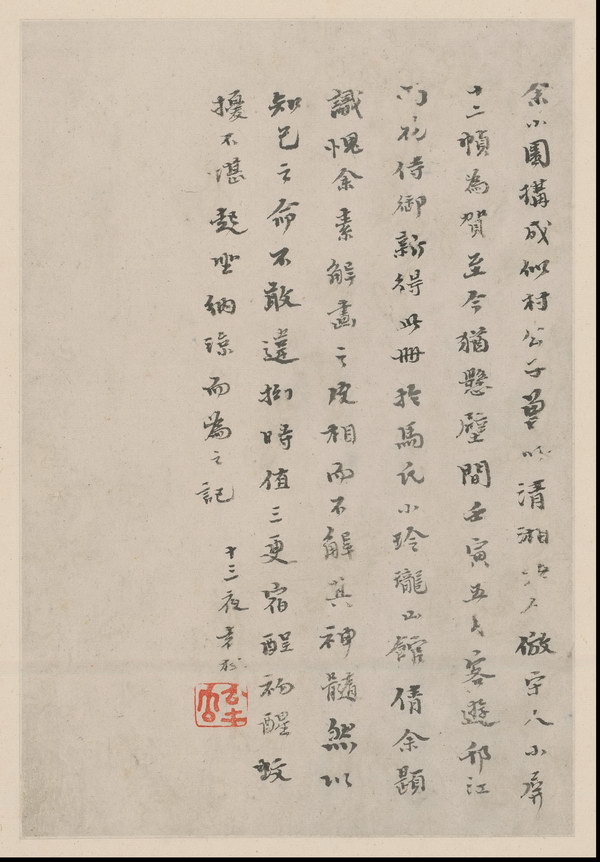 余小園搆成似村公子曾以清湘老人倣宋人小屏
十二幀為賀至今猶懸壁間壬寅五月客遊邗江
侍御新得此冊於馬氏小玲瓏山館倩余題
識愧余素解畫之皮相而不解其神髓然以
知己之命不敢違抝時值三更宿酲初醒蚊
擾不堪起坐納涼而為之記
十三夜袁枚